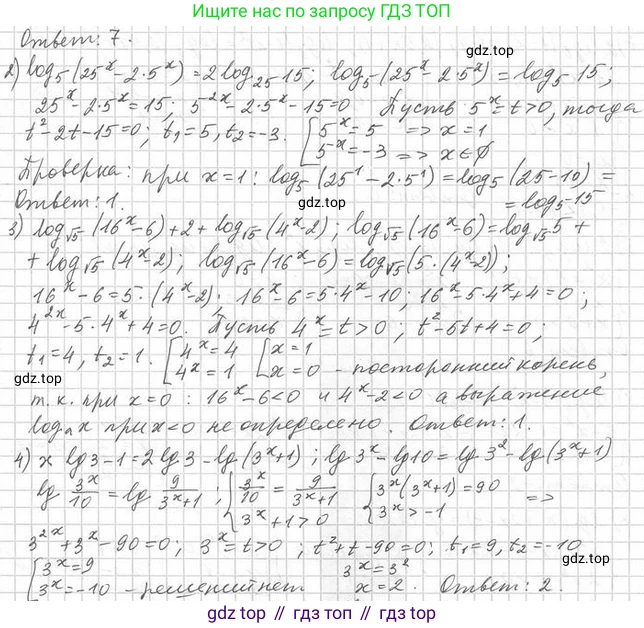 Ищите нас по запросу ГДЗ ТОП
Ответ: 7.
2) log₅(25ˣ - 2·5ˣ) = 2log₂₅15; log₅(25ˣ - 2·5ˣ) = log₅15;
25ˣ - 2·5ˣ = 15; 5²ˣ - 2·5ˣ - 15 = 0 Пусть 5ˣ = t > 0, тогда
t² - 2t - 15 = 0; t₁ = 5, t₂ = -3. [5ˣ = 5 => x = 1
5ˣ = -3 => x ∈ ∅
Проверка: при x = 1: log₅(25¹ - 2·5¹) = log₅(25 - 10) =
= log₅15
Ответ: 1.
3) log√5(16ˣ - 6) + 2 + log√5(4ˣ - 2); log√5(16ˣ - 6) = log√5 5 +
+ log√5(4ˣ - 2); log√5(16ˣ - 6) = log√5(5·(4ˣ - 2));
16ˣ - 6 = 5·(4ˣ - 2). 16ˣ - 6 = 5·4ˣ - 10; 16ˣ - 5·4ˣ + 4 = 0;
4²ˣ - 5·4ˣ + 4 = 0. Пусть 4ˣ = t > 0; t² - 5t + 4 = 0;
t₁ = 4, t₂ = 1. [4ˣ = 4 [x = 1
4ˣ = 1 x = 0 - посторонний корень,
т.к. при x = 0: 16ˣ - 6 < 0 и 4ˣ - 2 < 0 а выражение
logₐx при x < 0 не определено. Ответ: 1.
4) x lg3 - 1 = 2lg3 - lg(3ˣ + 1); lg3ˣ - lg10 = lg3² - lg(3ˣ + 1)
lg 3ˣ/10 = lg 9/(3ˣ + 1); {3ˣ/10 = 9/(3ˣ + 1) {3ˣ(3ˣ + 1) = 90 =>
3ˣ + 1 > 0 3ˣ > -1
3²ˣ + 3ˣ - 90 = 0; 3ˣ = t > 0; t² + t - 90 = 0; t₁ = 9, t₂ = -10
[3ˣ = 9 3ˣ = 3²
3ˣ = -10 - решений нет x = 2. Ответ: 2.
gdz.top
gdz.top
gdz.top
gdz.top
gdz.top
gdz.top // гдз.топ // gdz.top